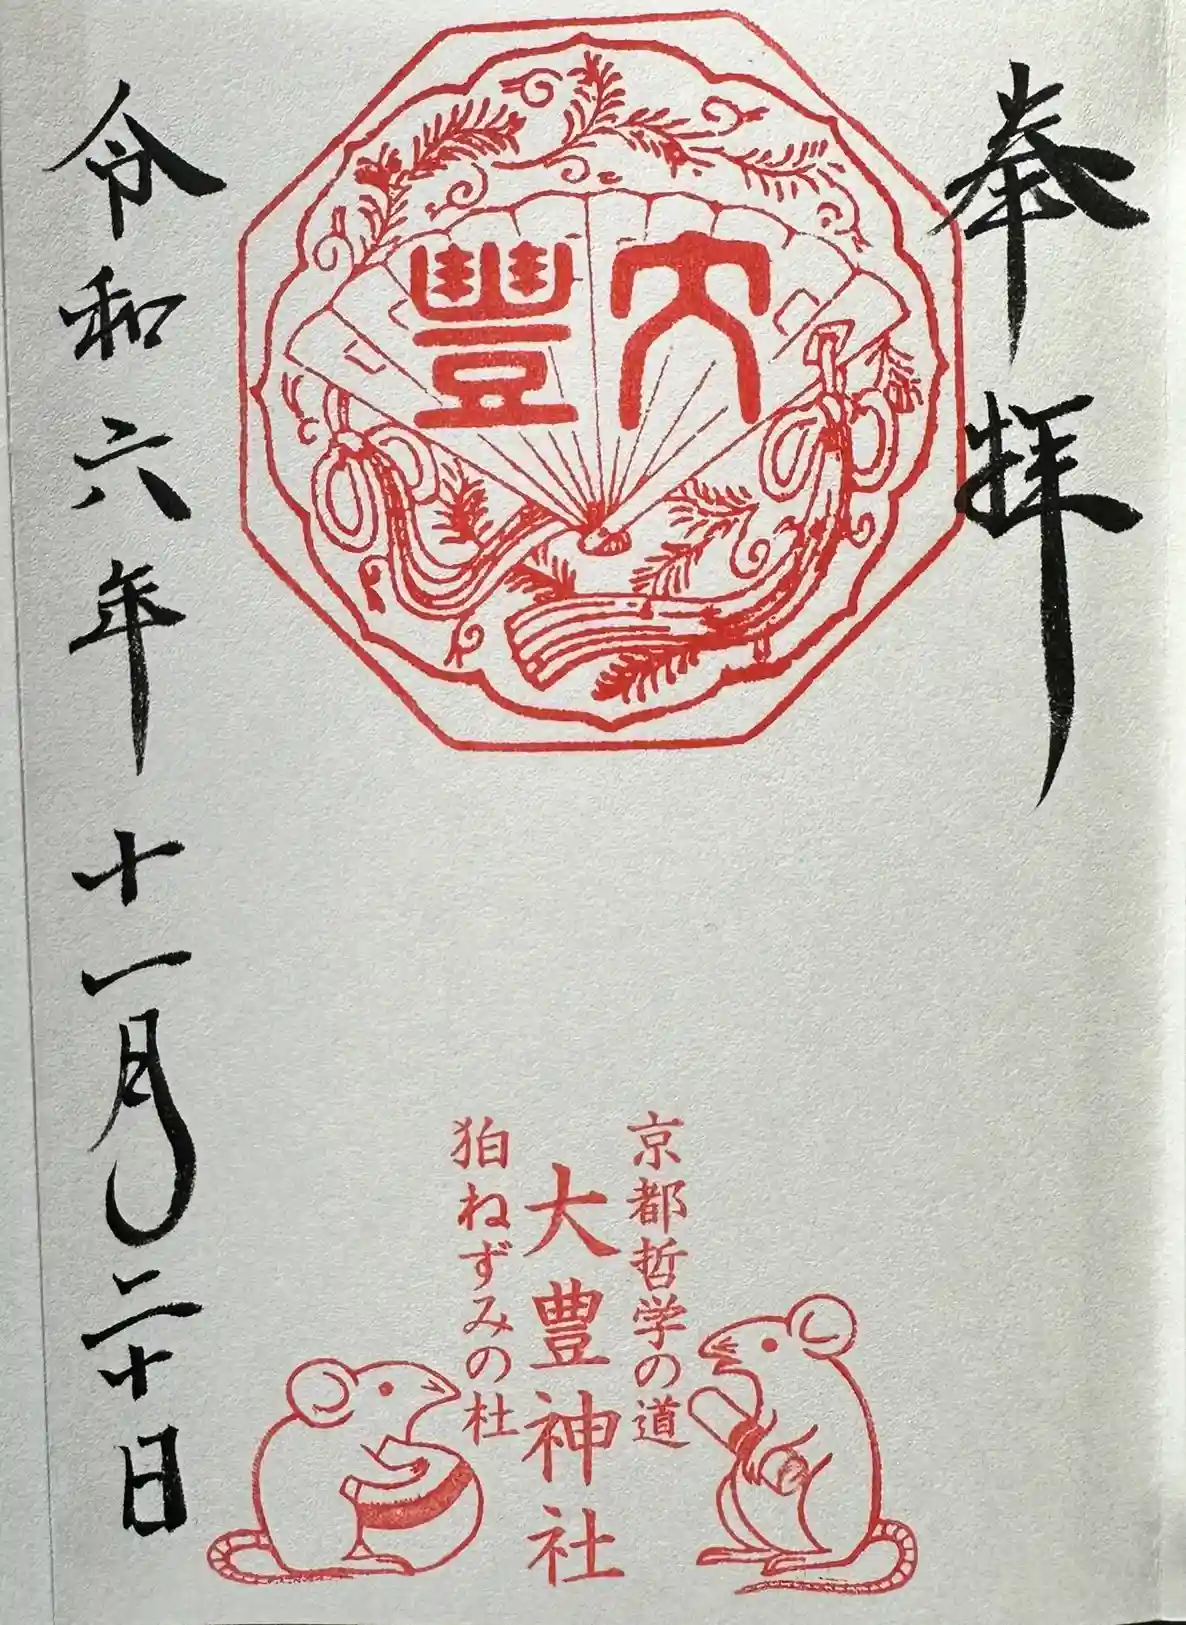 奉拝
大豊
京都哲学の道
大豊神社
狛ねずみの杜
令和六年十一月二十日